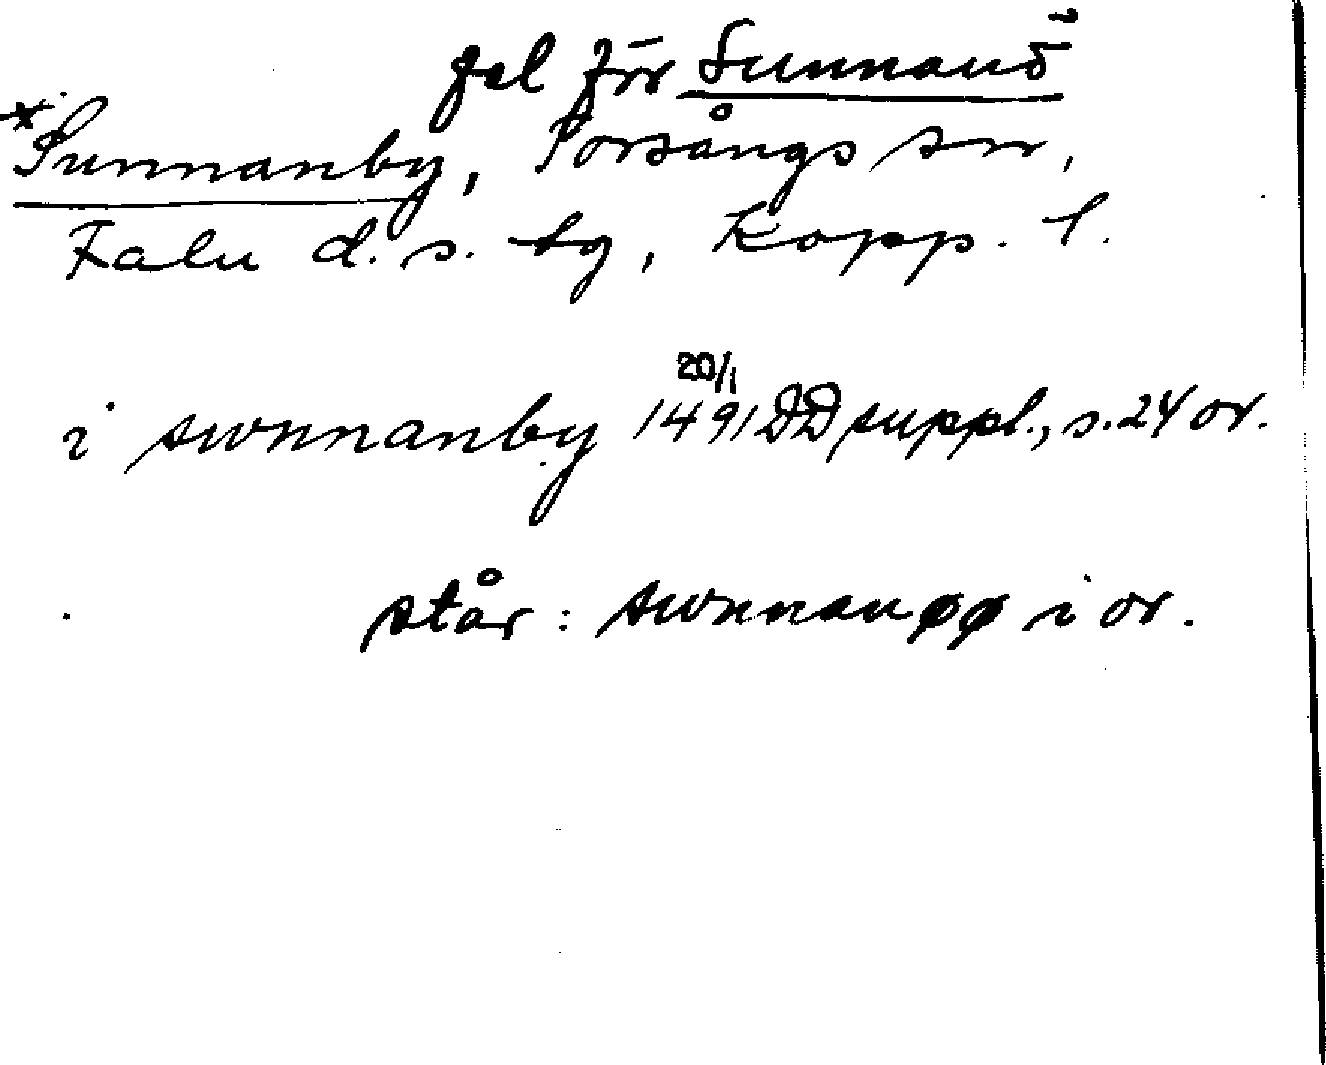 fel för Sunnanö
*Sunnanby, Torsångs sn,
Falu d. s. tg, Kopp. l.
20/1
i swnnanby 1491 DD suppl., s. 24 or.
står: swnnanøø i or.